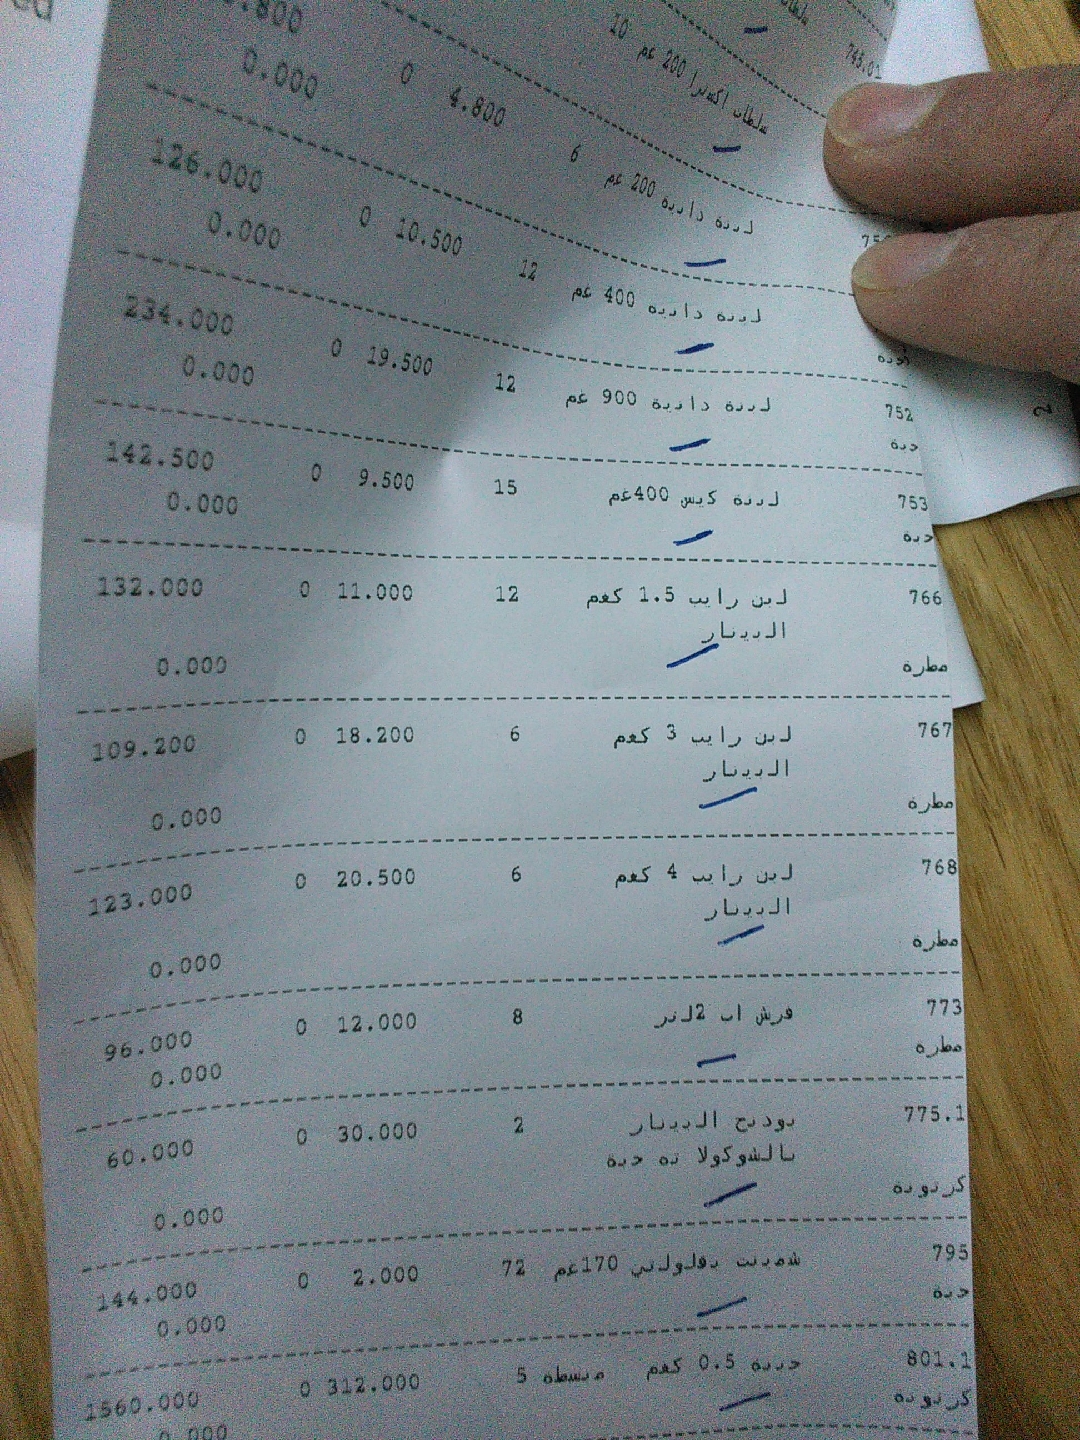 745.01
سلطان اكسترا 200 غم 10
0.000
لبنة دانية 200 غم 6 4.800 0
0.000
لبنة دانية 400 غم 12 10.500 0 126.000
0.000
752 لبنة دانية 900 غم 12 19.500 0 234.000
حبة 0.000
753 لبنة كيس 400غم 15 9.500 0 142.500
حبة 0.000
766 لبن رايب 1.5 كغم 12 11.000 0 132.000
البينار
مطرة 0.000
767 لبن رايب 3 كغم 6 18.200 0 109.200
البينار
مطرة 0.000
768 لبن رايب 4 كغم 6 20.500 0 123.000
البينار
مطرة 0.000
773 فرش اب 2لتر 8 12.000 0 96.000
مطرة 0.000
775.1 بودنج البينار 2 30.000 0 60.000
بالشوكولا ته حبة
كرتونة 0.000
795 شمينت بفلولني 170غم 72 2.000 0 144.000
حبة 0.000
801.1 جبنة 0.5 كغم مبسطه 5 312.000 0 1560.000
كرتونة 0.000